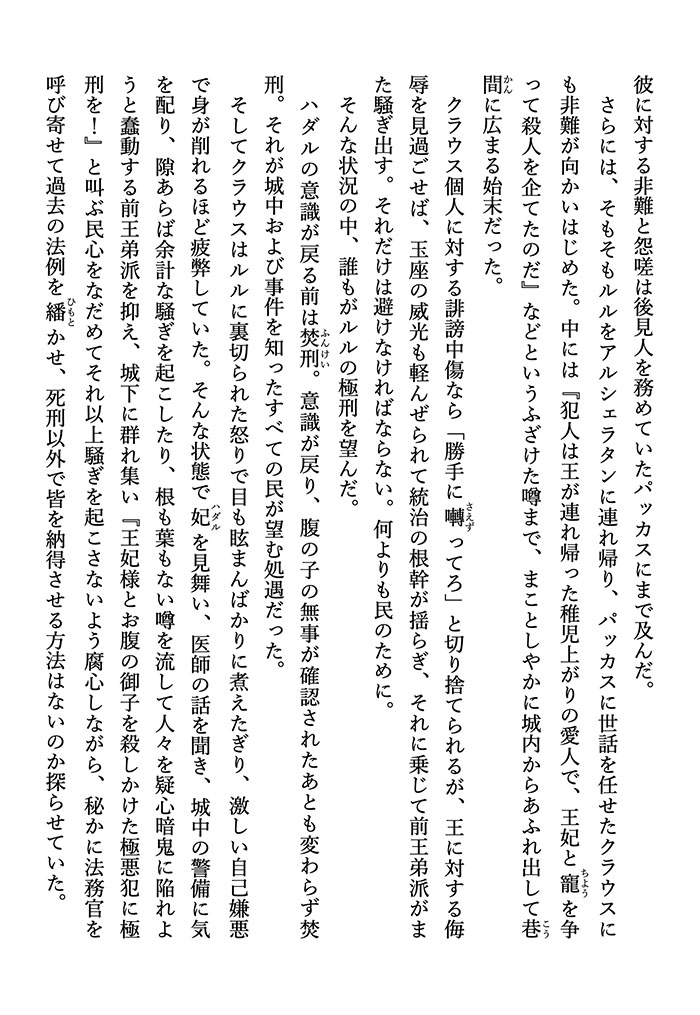 彼に対する非難と怨嗟は後見人を務めていたパッカスにまで及んだ。
さらには、そもそもルルをアルシェラタンに連れ帰り、パッカスに世話を任せたクラウスに
も非難が向かいはじめた。中には『犯人は王が連れ帰った稚児上がりの愛人で、王妃と寵ちょうを争
って殺人を企てたのだ』などというふざけた噂まで、まことしやかに城内からあふれ出して巷こう
間かんに広まる始末だった。
クラウス個人に対する誹謗中傷なら「勝手に囀さえずってろ」と切り捨てられるが、王に対する侮
辱を見過ごせば、玉座の威光も軽んぜられて統治の根幹が揺らぎ、それに乗じて前王弟派がま
た騒ぎ出す。それだけは避けなければならない。何よりも民のために。
そんな状況の中、誰もがルルの極刑を望んだ。
ハダルの意識が戻る前は焚刑ふんけい。意識が戻り、腹の子の無事が確認されたあとも変わらず焚
刑。それが城中および事件を知ったすべての民が望む処遇だった。
そしてクラウスはルルに裏切られた怒りで目も眩まんばかりに煮えたぎり、激しい自己嫌悪
で身が削れるほど疲弊していた。そんな状態で妃ハダルを見舞い、医師の話を聞き、城中の警備に気
を配り、隙あらば余計な騒ぎを起こしたり、根も葉もない噂を流して人々を疑心暗鬼に陥れよ
うと蠢動する前王弟派を抑え、城下に群れ集い『王妃様とお腹の御子を殺しかけた極悪犯に極
刑を！』と叫ぶ民心をなだめてそれ以上騒ぎを起こさないよう腐心しながら、秘かに法務官を
呼び寄せて過去の法例を繙ひもとかせ、死刑以外で皆を納得させる方法はないのか探らせていた。